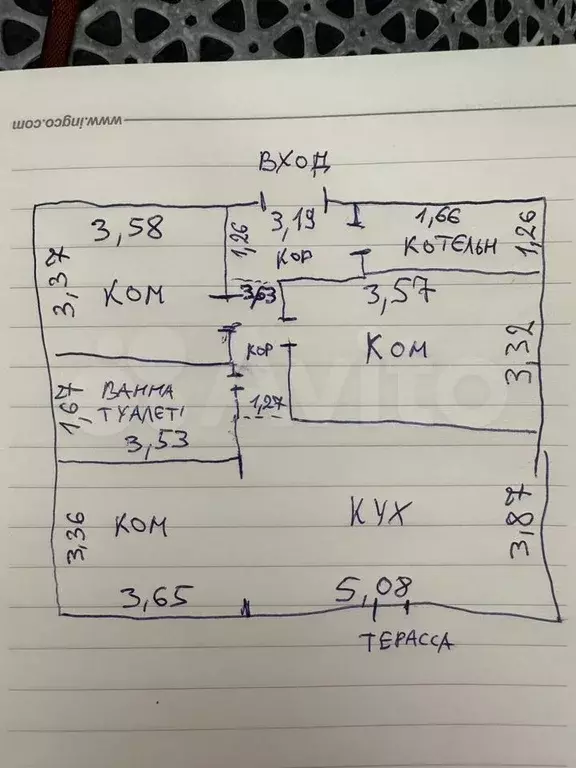 www.ingco.com
ВХОД
3,58
1,26
3,19
1,66
1,26
КОР
КОТЄЛЬН
3,37
КОМ
3,63
3,57
КОР
КОМ
3,32
1,67
ВАННА
ТУАЛЕТ
1,27
3,53
3,36
КОМ
КУХ
3,87
3,65
5,08
ТЕРАССА
Avito